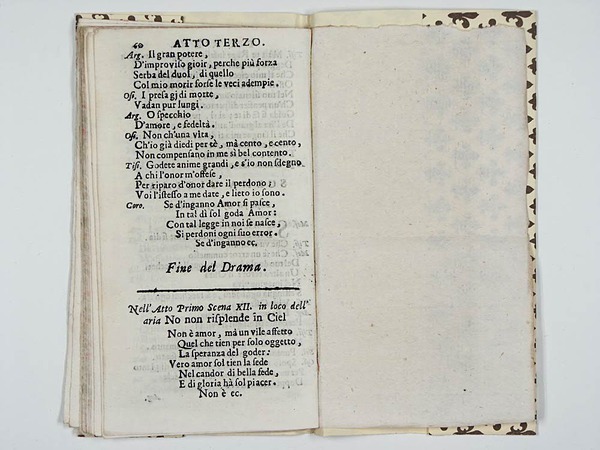 60 ATTO TERZO.
Arg. Il gran potere,
D'improviso gioir, perche più forza
Serba del duol, di quello
Col mio morir forse le veci adempie.
Osi. I presagj di morte,
Vadan pur lungi.
Arg. O specchio
D'amore, e fedeltà.
Osi. Non ch'una vita,
Ch'io già diedi per tè, mà cento, e cento,
Non compensano in me sì bel contento.
Tisi. Godete anime grandi, e s'io non sdegno
A chi l'onor m'offese,
Per riparo d'onor dare il perdono;
Voi l'istesso a me date, e lieto io sono.
Coro. Se d'inganno Amor si pasce,
In tal dì sol goda Amor:
Con tal legge in noi se nasce,
Si perdoni ogni suo error.
Se d'inganno ec.
Fine del Drama.
Nell'Atto Primo Scena XII. in loco dell'
aria No non risplende in Ciel
Non è amor, mà un vile affetto
Quel che tien per solo oggetto,
La speranza del goder.
Vero amor sol tien la sede
Nel candor di bella fede,
E di gloria hà sol piacer.
Non è ec.